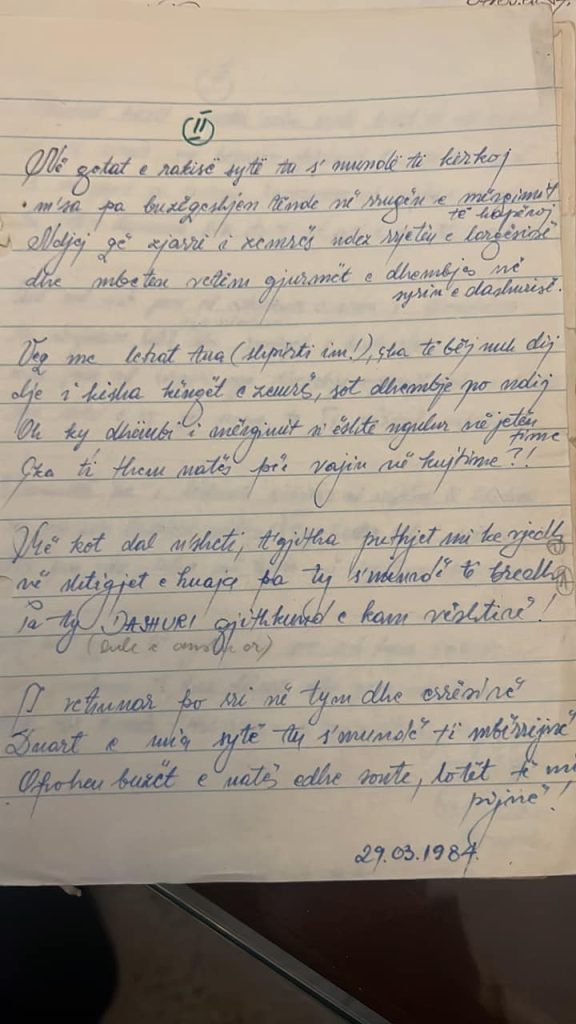 II
Në gotat e rakisë sytë tu s'mundë ti kërkoj
m'sa pa buzëqeshjen tënde në rrugën e mërgimit
të hapëroj
Ndjej që zjarri i zemrës ndez rrjetën e largësisë
dhe mbeten vetëm gjurmët e dhembjes në
syrin e dashurisë.
Veq me letrat tua (shpirti im!), çka të bëj nuk dij
dje i kisha këngët e zemrës, sot dhembje po ndij
Oh ky dhëmbi i mërgimit m'është ngulur në jetën
time
Çka ti them natës për vajin në kujtime?!
Më kot dal n'sheti, t'gjitha puthjet mi ke vjedh
në shtigjet e huaja pa ty s'mundë të bredh
Pa ty DASHURI gjithkund e kam vështirë!
I vetmuar po rri në tym dhe errësirë
Duart e mia sytë tu s'mundë ti mbërrijnë
Afrohen buzët e natës edhe sonte, lotët të mi
pijnë!
29.03.1984.